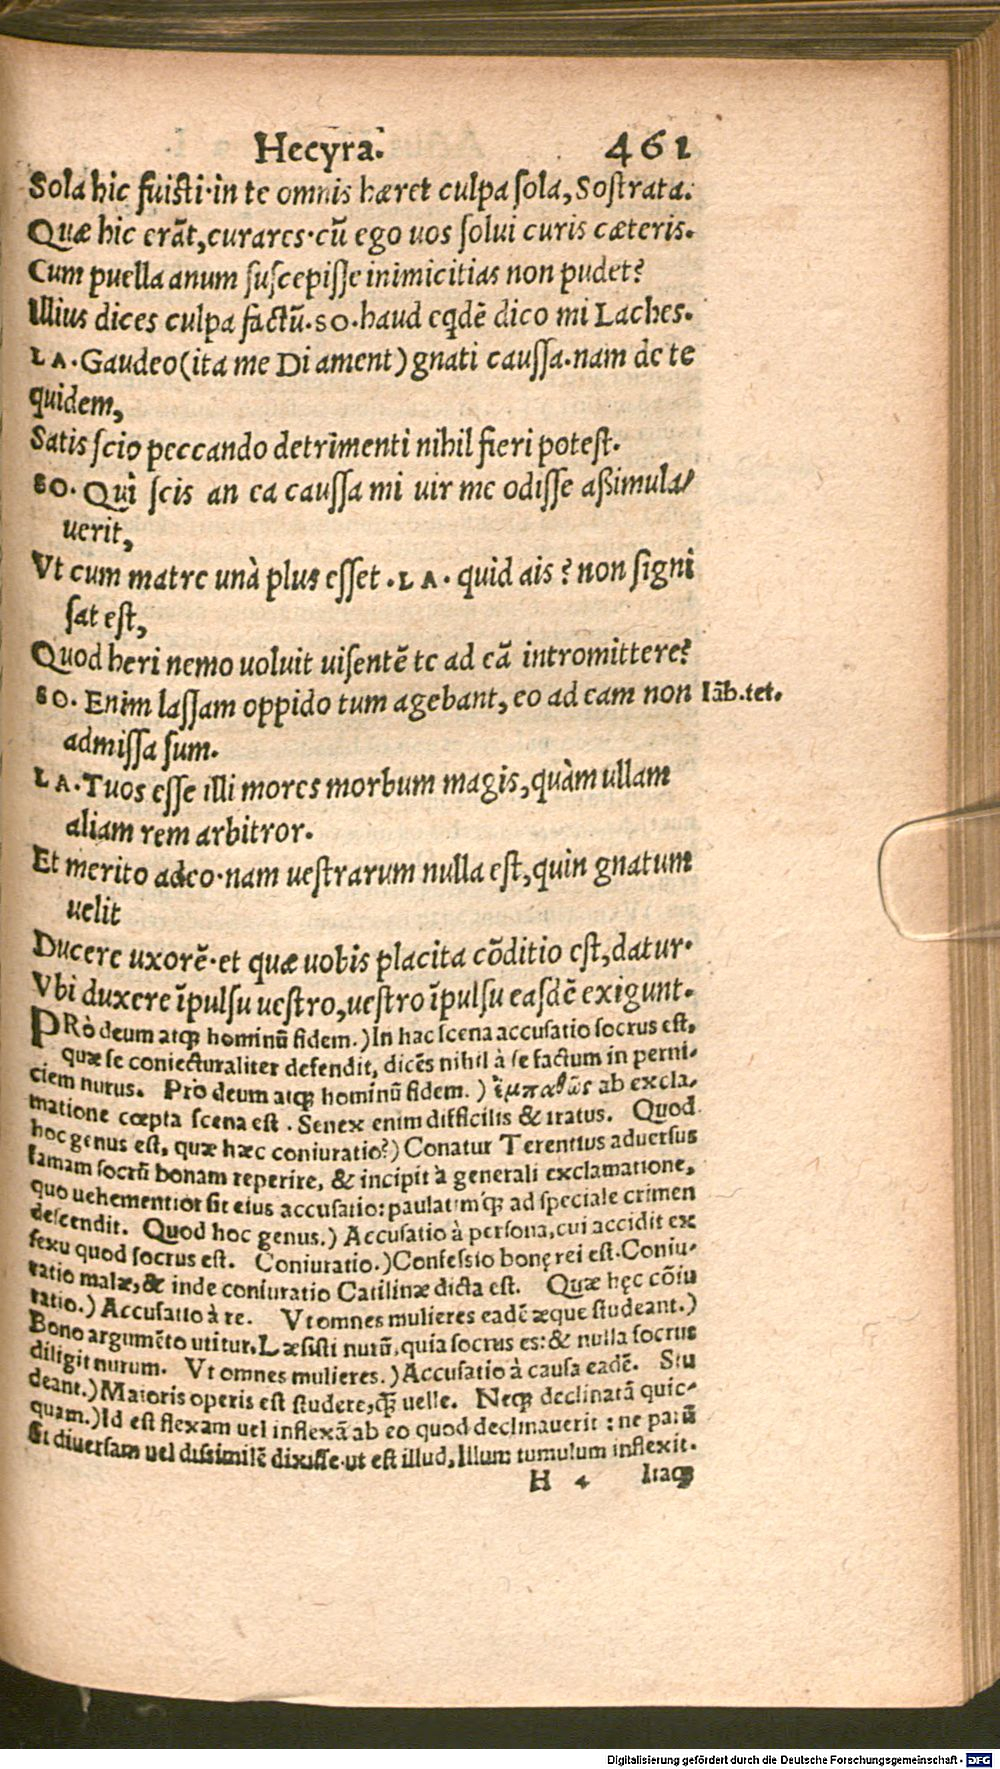 Hecyra. 461
Sola hic fuisti·in te omnis hæret culpa sola, Sostrata.
Quæ hic erāt, curares·cū ego uos solui curis cæteris.
Cum puella anum suscepisse inimicitias non pudet?
Illius dices culpa factū. SO. haud eqdē dico mi Laches.
LA. Gaudeo (ita me Di ament) gnati caussa. nam de te
quidem,
Satis scio peccando detrimenti nihil fieri potest.
SO. Quì scis an ea caussa mi uir me odisse aßimula/
uerit,
Vt cum matre unà plus esset. LA. quid ais? non signi
sat est,
Quod heri nemo uoluit uisentē te ad eā intromittere?
SO. Enim lassam oppido tum agebant, eo ad eam non Iāb.tet.
admissa sum.
LA. Tuos esse illi mores morbum magis, quàm ullam
aliam rem arbitror.
Et merito adeo·nam uestrarum nulla est, quin gnatum
uelit
Ducere uxorē·et quæ uobis placita cōditio est, datur·
Vbi duxere īpulsu uestro, uestro īpulsu easdē exigunt.
PRò deum atq; hominū fidem.) In hac scena accusatio socrus est,
quæ se coniecturaliter defendit, dicēs nihil à se factum in perni-
ciem nurus. Prò deum atq; hominū fidem.) ἐμπαθῶς ab excla-
matione cœpta scena est. Senex enim difficilis & iratus. Quod
hoc genus est, quæ hæc coniuratio?) Conatur Terentius aduersus
famam socrū bonam reperire, & incipit à generali exclamatione,
quo uehementior sit eius accusatio: paulatimq; ad speciale crimen
descendit. Quod hoc genus.) Accusatio à persona, cui accidit ex
sexu quod socrus est. Coniuratio.) Confessio bonę rei est. Coniu-
ratio malæ, & inde coniuratio Catilinæ dicta est. Quæ hęc cōiu
ratio.) Accusatio à re. Vt omnes mulieres eadē æque studeant.)
Bono argumēto utitur. Læsisti nurū, quia socrus es: & nulla socrus
diligit nurum. Vt omnes mulieres.) Accusatio à causa eadē. Stu
deant.) Maioris operis est studere, q̄ uelle. Neq; declinatā quic-
quam.) Id est flexam uel inflexā ab eo quod declinauerit: ne parū
sit diuersam uel dissimilē dixisse·ut est illud, Illum tumulum inflexit.
H 4 Itaq;
Digitalisierung gefördert durch die Deutsche Forschungsgemeinschaft - DFG